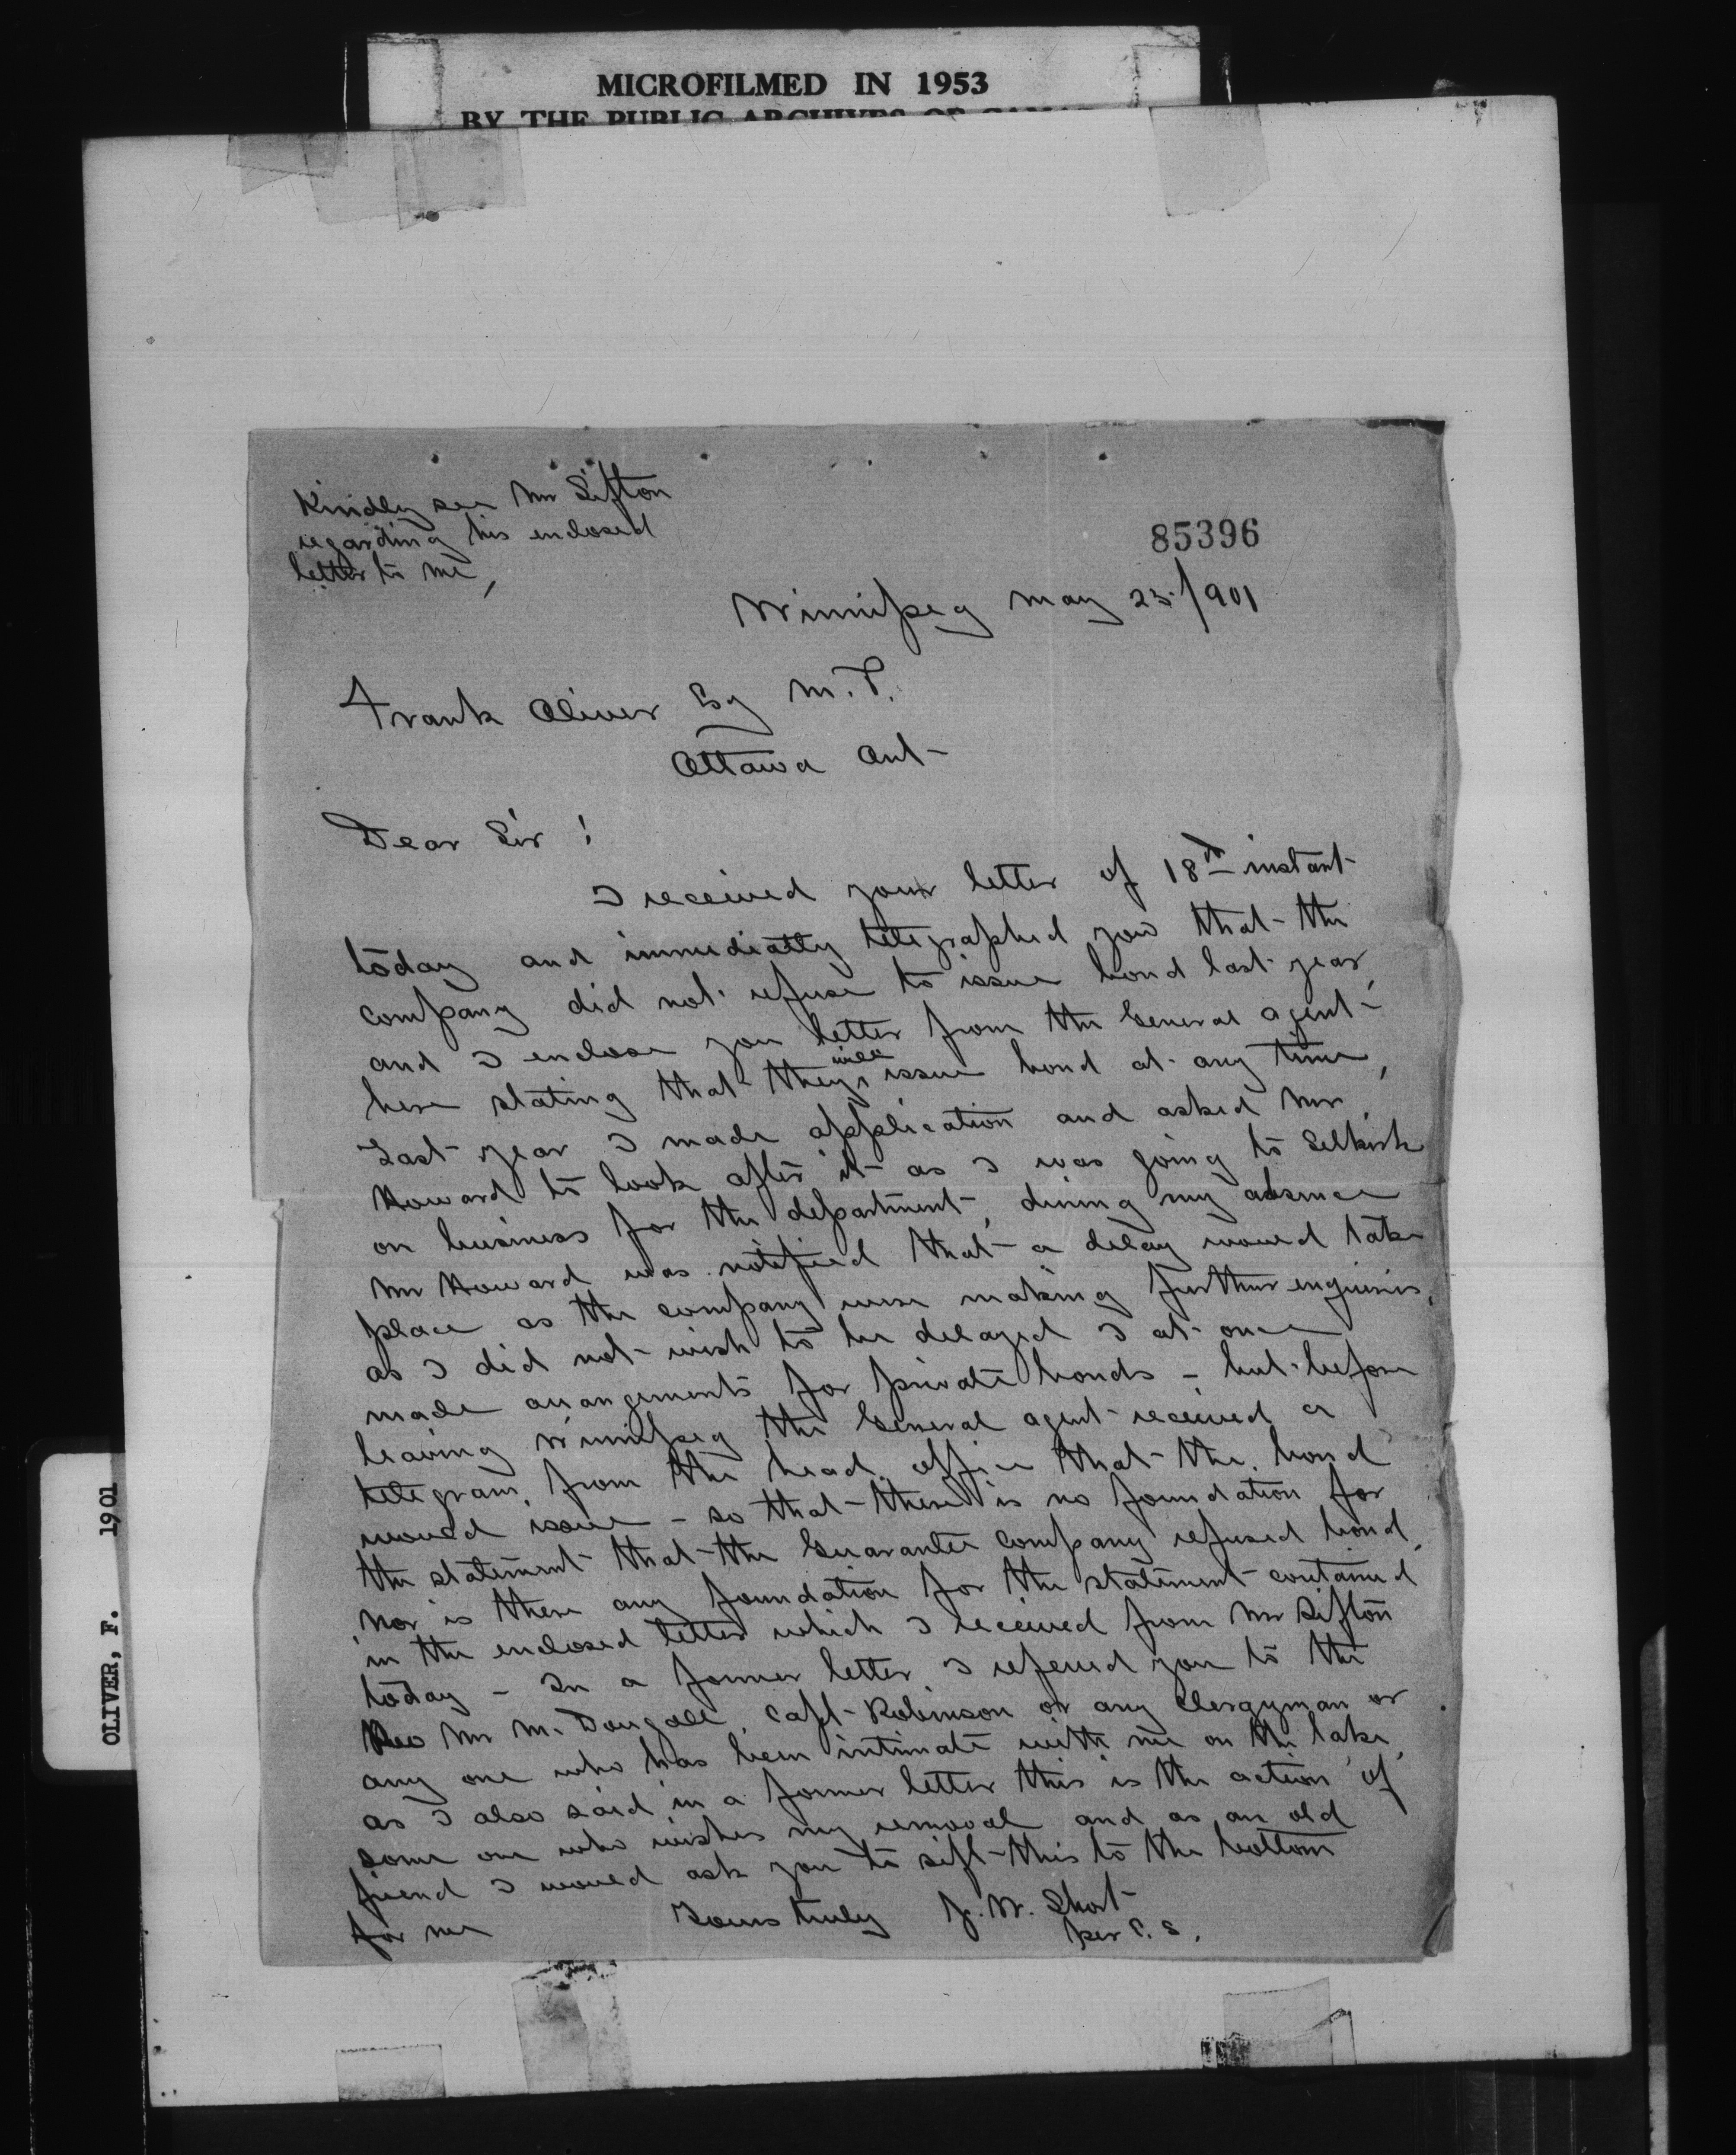 MICROFILMED IN 1953
BY THE PUBLIC ARCHIVES OF
Kindly see Mr Sifton
regarding his enclosed
letter to me,
85396
Winnipeg May 25/901
Frank Oliver Esq M.P.
Ottawa Ont-
Dear Sir!
I received your letter of 18th instant
today and immediatly telegraphed you that the
company did not refuse to issue bond last year,
and I enclose you letter from the General agent
here stating that they will issue bond at any time,
Last year I made application and asked Mr
Howard to look after it as I was going to Selkirk
on business for the department, during my absence
Mr Howard was notified that a delay would take
place as the company were making further enquiries,
as I did not wish to be delayed I at once
made arrangements for private bonds - but before
leaving Winnipeg the General agent received a
telegram from the head office that the bond
would issue - so that there is no foundation for
the statement that the Guarantee Company refused bond,
Nor is there any foundation for the statement contained
in the enclosed letter which I received from Mr Sifton
today - In a former letter I refered you to the
Rev Mr McDougall, Capt Robinson or any Clergyman or
any one who has been intimate with me on the lake,
as I also said in a former letter this is the action of
some one who wishes my removal and as an old
friend I would ask you to sift this to the bottom
for me
Yours truly J. W. Short
per C. S.
OLIVER, F. 1901